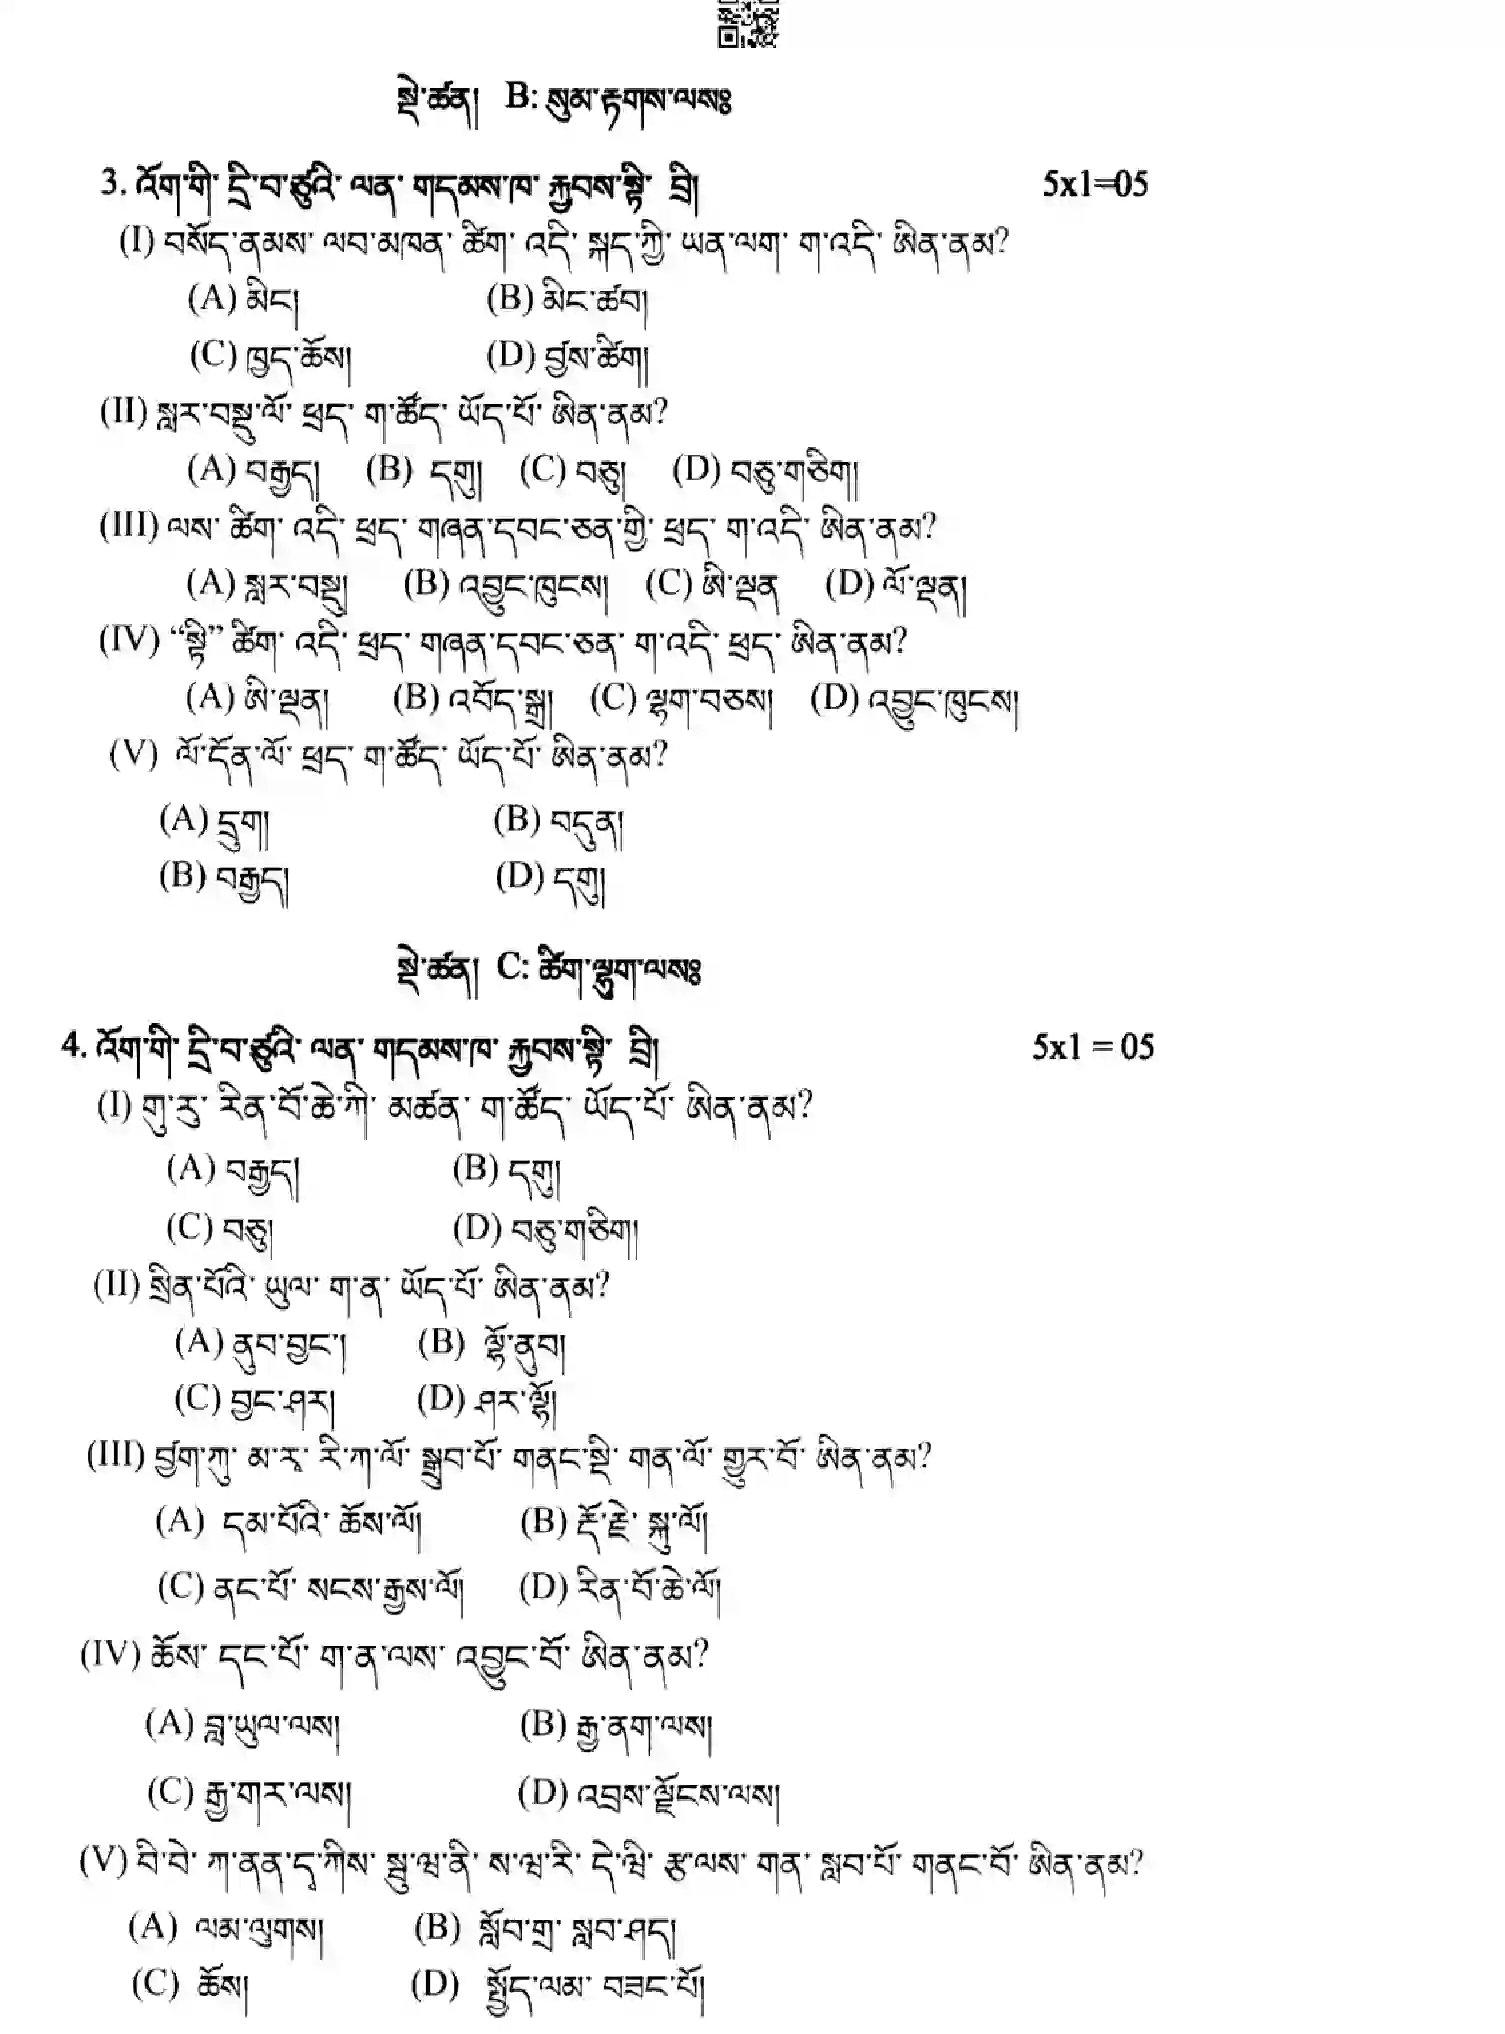 སྡེ་ཚན། B: སུམ་རྟགས་ལསཿ
3. འོག་གི་ དྲི་བ་ཙུའི་ ལན་ གདམས་ཁ་ རྐྱབས་སྟི་ བྲི། 5x1=05
(I) བསོད་ནམས་ ལབ་མཁན་ ཚིག་ འདི་ སྐད་ཀྱི་ ཡན་ལག་ ག་འདི་ ཨིན་ནམ?
(A) མིང། (B) མིང་ཚབ།
(C) ཁྱད་ཆོས། (D) བྱས་ཚིག།
(II) སླར་བསྡུ་ལོ་ ཕྲད་ ག་ཚོད་ ཡོད་པོ་ ཨིན་ནམ?
(A) བརྒྱད། (B) དགུ། (C) བཅུ། (D) བཅུ་གཅིག།
(III) ལས་ ཚིག་ འདི་ ཕྲད་ གཞན་དབང་ཅན་གྱི་ ཕྲད་ ག་འདི་ ཨིན་ནམ?
(A) སླར་བསྡུ། (B) འབྱུང་ཁུངས། (C) ཨི་ལྡན (D) ལོ་ལྡན།
(IV) “སྟི” ཚིག་ འདི་ ཕྲད་ གཞན་དབང་ཅན་ ག་འདི་ ཕྲད་ ཨིན་ནམ?
(A) ཨི་ལྡན། (B) འབོད་སྒྲ། (C) ལྷག་བཅས། (D) འབྱུང་ཁུངས།
(V) ལོ་དོན་ལོ་ ཕྲད་ ག་ཚོད་ ཡོད་པོ་ ཨིན་ནམ?
(A) དྲུག། (B) བདུན།
(B) བརྒྱད། (D) དགུ།
སྡེ་ཚན། C: ཚིག་ལྷུག་ལསཿ
4. འོག་གི་ དྲི་བ་ཙུའི་ ལན་ གདམས་ཁ་ རྐྱབས་སྟི་ བྲི། 5x1 = 05
(I) གུ་རུ་ རིན་པོ་ཆེ་ཀི་ མཚན་ ག་ཚོད་ ཡོད་པོ་ ཨིན་ནམ?
(A) བརྒྱད། (B) དགུ།
(C) བཅུ། (D) བཅུ་གཅིག།
(II) སྲིན་པོའི་ ཡུལ་ ག་ན་ ཡོད་པོ་ ཨིན་ནམ?
(A) ནུབ་བྱང་། (B) ལྷོ་ནུབ།
(C) བྱང་ཤར། (D) ཤར་ལྷོ།
(III) བྱག་ཀུ་ མ་རཱ་ རི་ཀ་ལོ་ སྒྲུབ་པོ་ གནང་སྡི་ གན་ལོ་ གྱུར་བོ་ ཨིན་ནམ?
(A) དམ་པོའི་ ཆོས་ལོ། (B) རྡོ་རྗེ་ སྐུ་ལོ།
(C) ནང་པོ་ སངས་རྒྱས་ལོ། (D) རིན་པོ་ཆེ་ལོ།
(IV) ཆོས་ དང་པོ་ ག་ན་ལས་ འབྱུང་བོ་ ཨིན་ནམ?
(A) བླ་ཡུལ་ལས། (B) རྒྱ་ནག་ལས།
(C) རྒྱ་གར་ལས། (D) འབྲས་ལྗོངས་ལས།
(V) བི་བེ་ ཀ་ནན་དྲ་ཀིས་ སྦྲུ་ཝ་ནི་ ས་ཝ་རི་ དེ་ཝི་ རྩ་ལས་ གན་ སླབ་པོ་ གནང་བོ་ ཨིན་ནམ?
(A) ལམ་ལུགས། (B) སློབ་གྲ་ སླབ་ཤད།
(C) ཆོས། (D) སྤྱོད་ལམ་ བཟང་པོ།